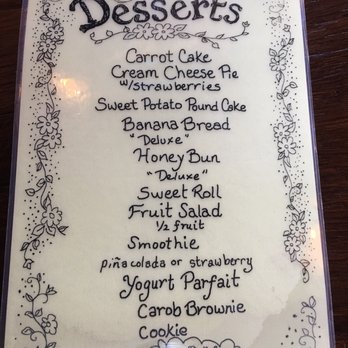 Desserts
Carrot Cake
Cream Cheese Pie
w/strawberries
Sweet Potato Pound Cake
Banana Bread
"Deluxe"
Honey Bun
"Deluxe"
Sweet Roll
Fruit Salad
1/2 fruit
Smoothie
piña colada or strawberry
Yogurt Parfait
Carob Brownie
Cookie